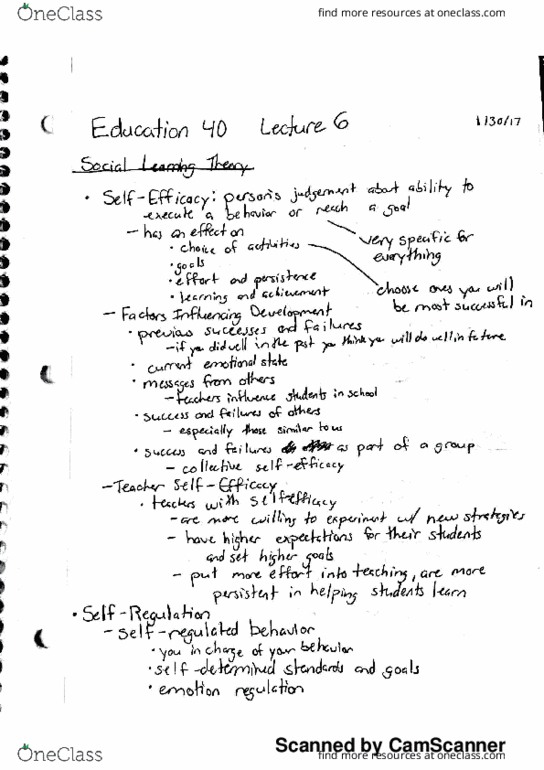 OneClass
find more resources at oneclass.com
Education 40 Lecture 6
1/30/17
Social Learning Theory
• Self-Efficacy: person's judgement about ability to
execute a behavior or reach a goal
- has an effect on
very specific for
everything
• choice of activities
• goals
• effort and persistence
choose ones you will
be most successful in
• learning and achievement
- Factors Influencing Development
• previous successes and failures
- if you did well in the pst you think you will do well in future
• current emotional state
• messages from others
- teachers influence students in school
• success and failures of others
- especially those similar to us
• success and failures as part of a group
- collective self-efficacy
- Teacher Self-Efficacy
• teachers with self efficacy
- are more willing to experiment w/ new strategies
- have higher expectations for their students
and set higher goals
- put more effort into teaching, are more
persistent in helping students learn
• Self-Regulation
- self-regulated behavior
• you in charge of your behavior
• self-determined standards and goals
• emotion regulation
Scanned by CamScanner
OneClass
find more resources at oneclass.com